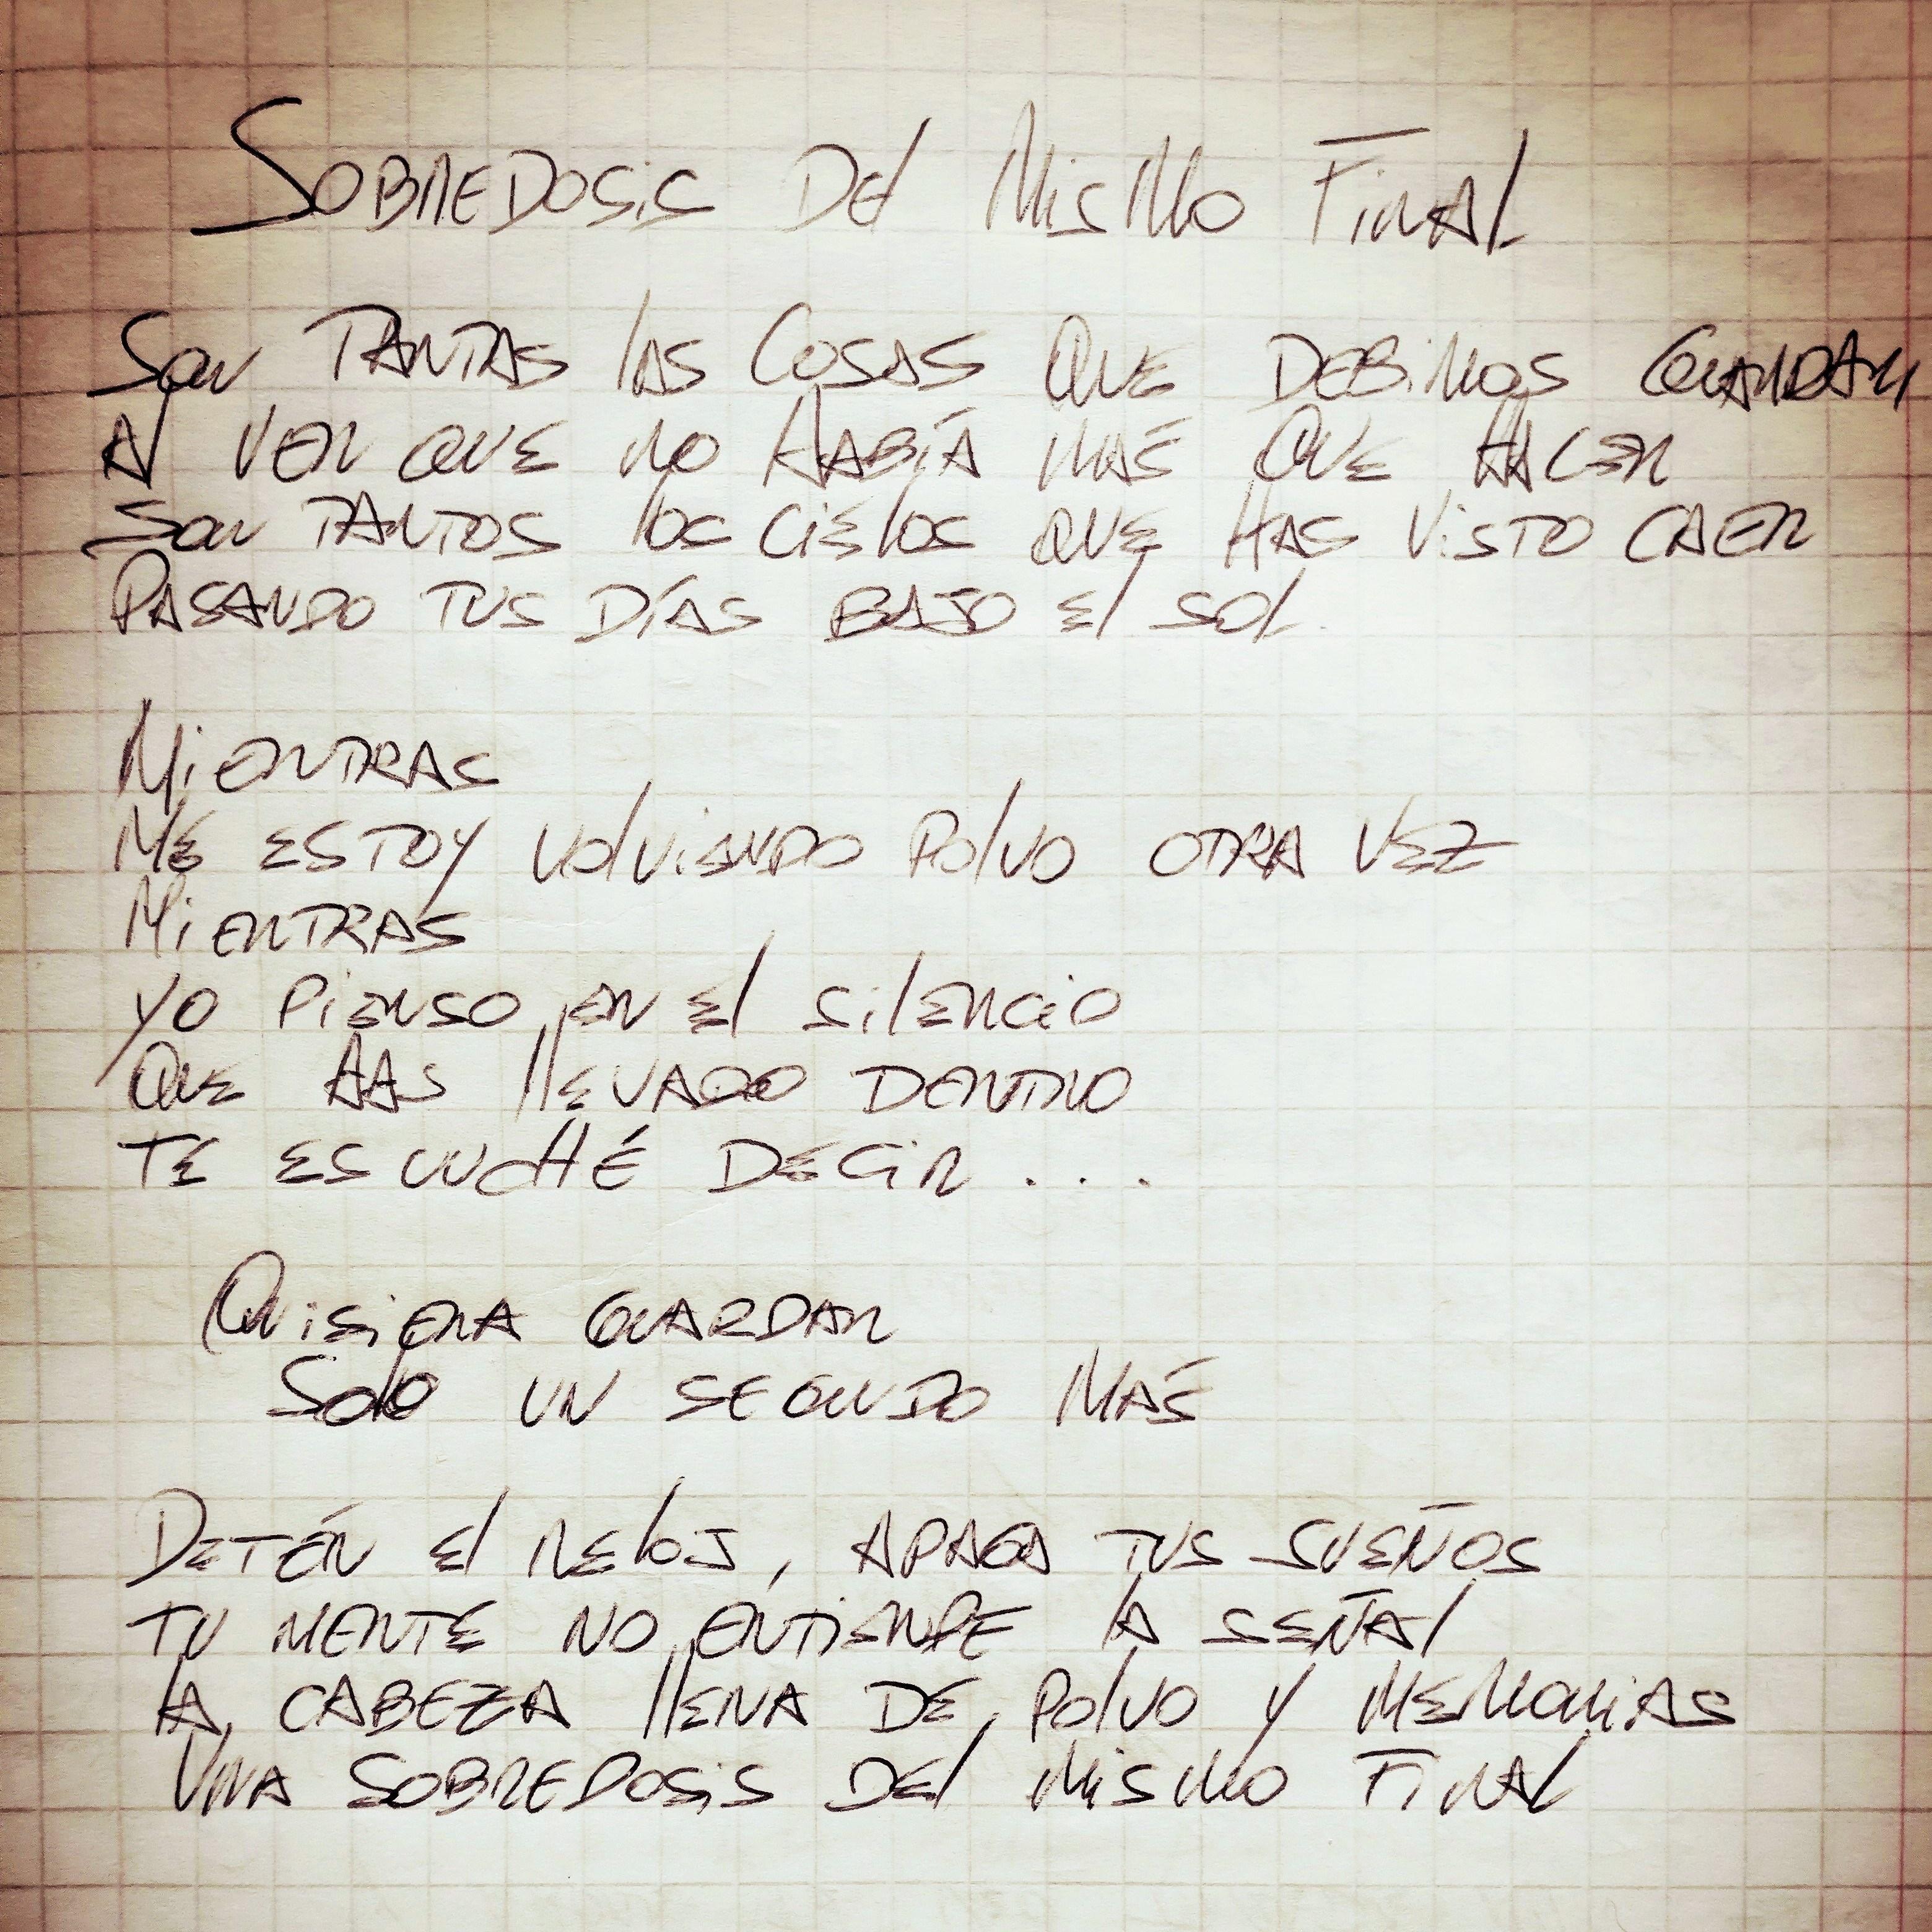 SOBREDOSIS DEL MISMO FINAL
SON TANTAS LAS COSAS QUE DEBIMOS GUARDAR
AL VER QUE NO HABÍA MÁS QUE HACER
SON TANTOS LOS CIELOS QUE HAS VISTO CAER
PASANDO TUS DÍAS BAJO EL SOL.
MIENTRAS
ME ESTOY VOLVIENDO POLVO OTRA VEZ
MIENTRAS
YO PIENSO EN EL SILENCIO
QUE HAS LLEVADO DENTRO
TE ESCUCHÉ DECIR...
QUISIERA GUARDAR
SOLO UN SEGUNDO MÁS
DETÉN EL RELOJ, APAGA TUS SUEÑOS
TU MENTE NO ENTIENDE LA SEÑAL
LA CABEZA LLENA DE POLVO Y MEMORIAS
UNA SOBREDOSIS DEL MISMO FINAL